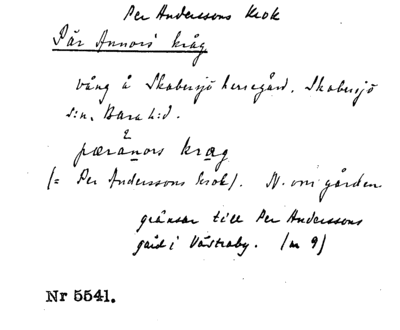 Per Anderssons Krok
Pär Annors kråg
vång å Skabersjö herregård. Skabersjö
s:n, Bara h:d.
pæranors kræg
(= Per Anderssons krok). N. om gården
gränsar till Per Anderssons
gård i Västraby. (m 9)
Nr 5541.